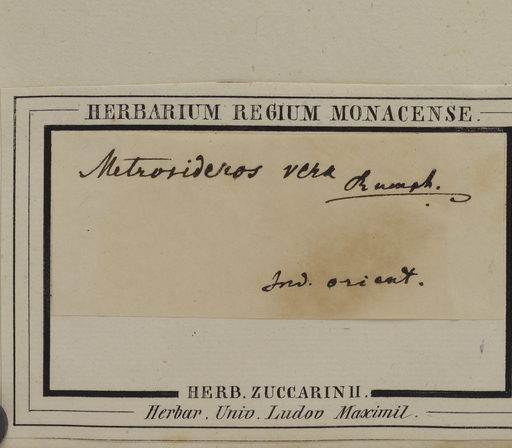 HERBARIUM REGIUM MONACENSE.
Metrosideros vera Rumph.
Ind. orient.
HERB. ZUCCARINII.
Herbar. Univ. Ludov Maximil.